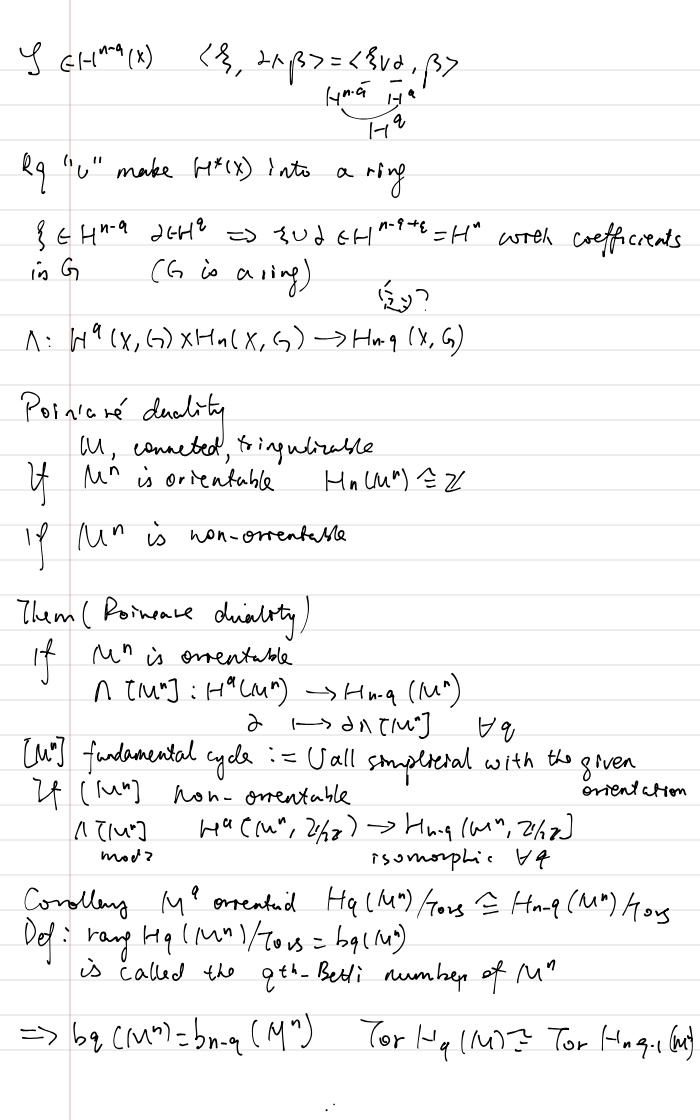 ξ ∈ H^{n-q}(X) ⟨ξ, α∧β⟩ = ⟨ξ∪α, β⟩
H^{n-q} H^q
H^q
Rq "∪" make H*(X) into a ring
ξ ∈ H^{n-q} α∈H^q ⇒ ξ∪α ∈ H^{n-q+q} = H^n with coefficients
in G (G is a ring)
?
∧: H^q(X,G) × H_n(X,G) → H_{n-q}(X,G)
Poincaré duality
M, conneted, tringulizable
If M^n is orientable H_n(M^n) ≅ ℤ
If M^n is non-orientable
Them (Poincare duality)
If M^n is orientable
∩ [M^n] : H^q(M^n) → H_{n-q}(M^n)
α ↦ α∩[M^n] ∀q
[M^n] fundamental cycle := ∪ all simplicial with the given
orientation
If [M^n] non-orientable
∩ [M^n] H^q(M^n, ℤ/2ℤ) → H_{n-q}(M^n, ℤ/2ℤ]
mod 2 isomorphic ∀q
Corollary M^q oriented H_q(M^n)/Tors ≅ H_{n-q}(M^n)/Tors
Def: rang H_q(M^n)/Tors = b_q(M^n)
is called the q^{th}-Betti number of M^n
⇒ b_q(M^n) = b_{n-q}(M^n) Tor H_q(M) ≅ Tor H_{n-q-1}(M)